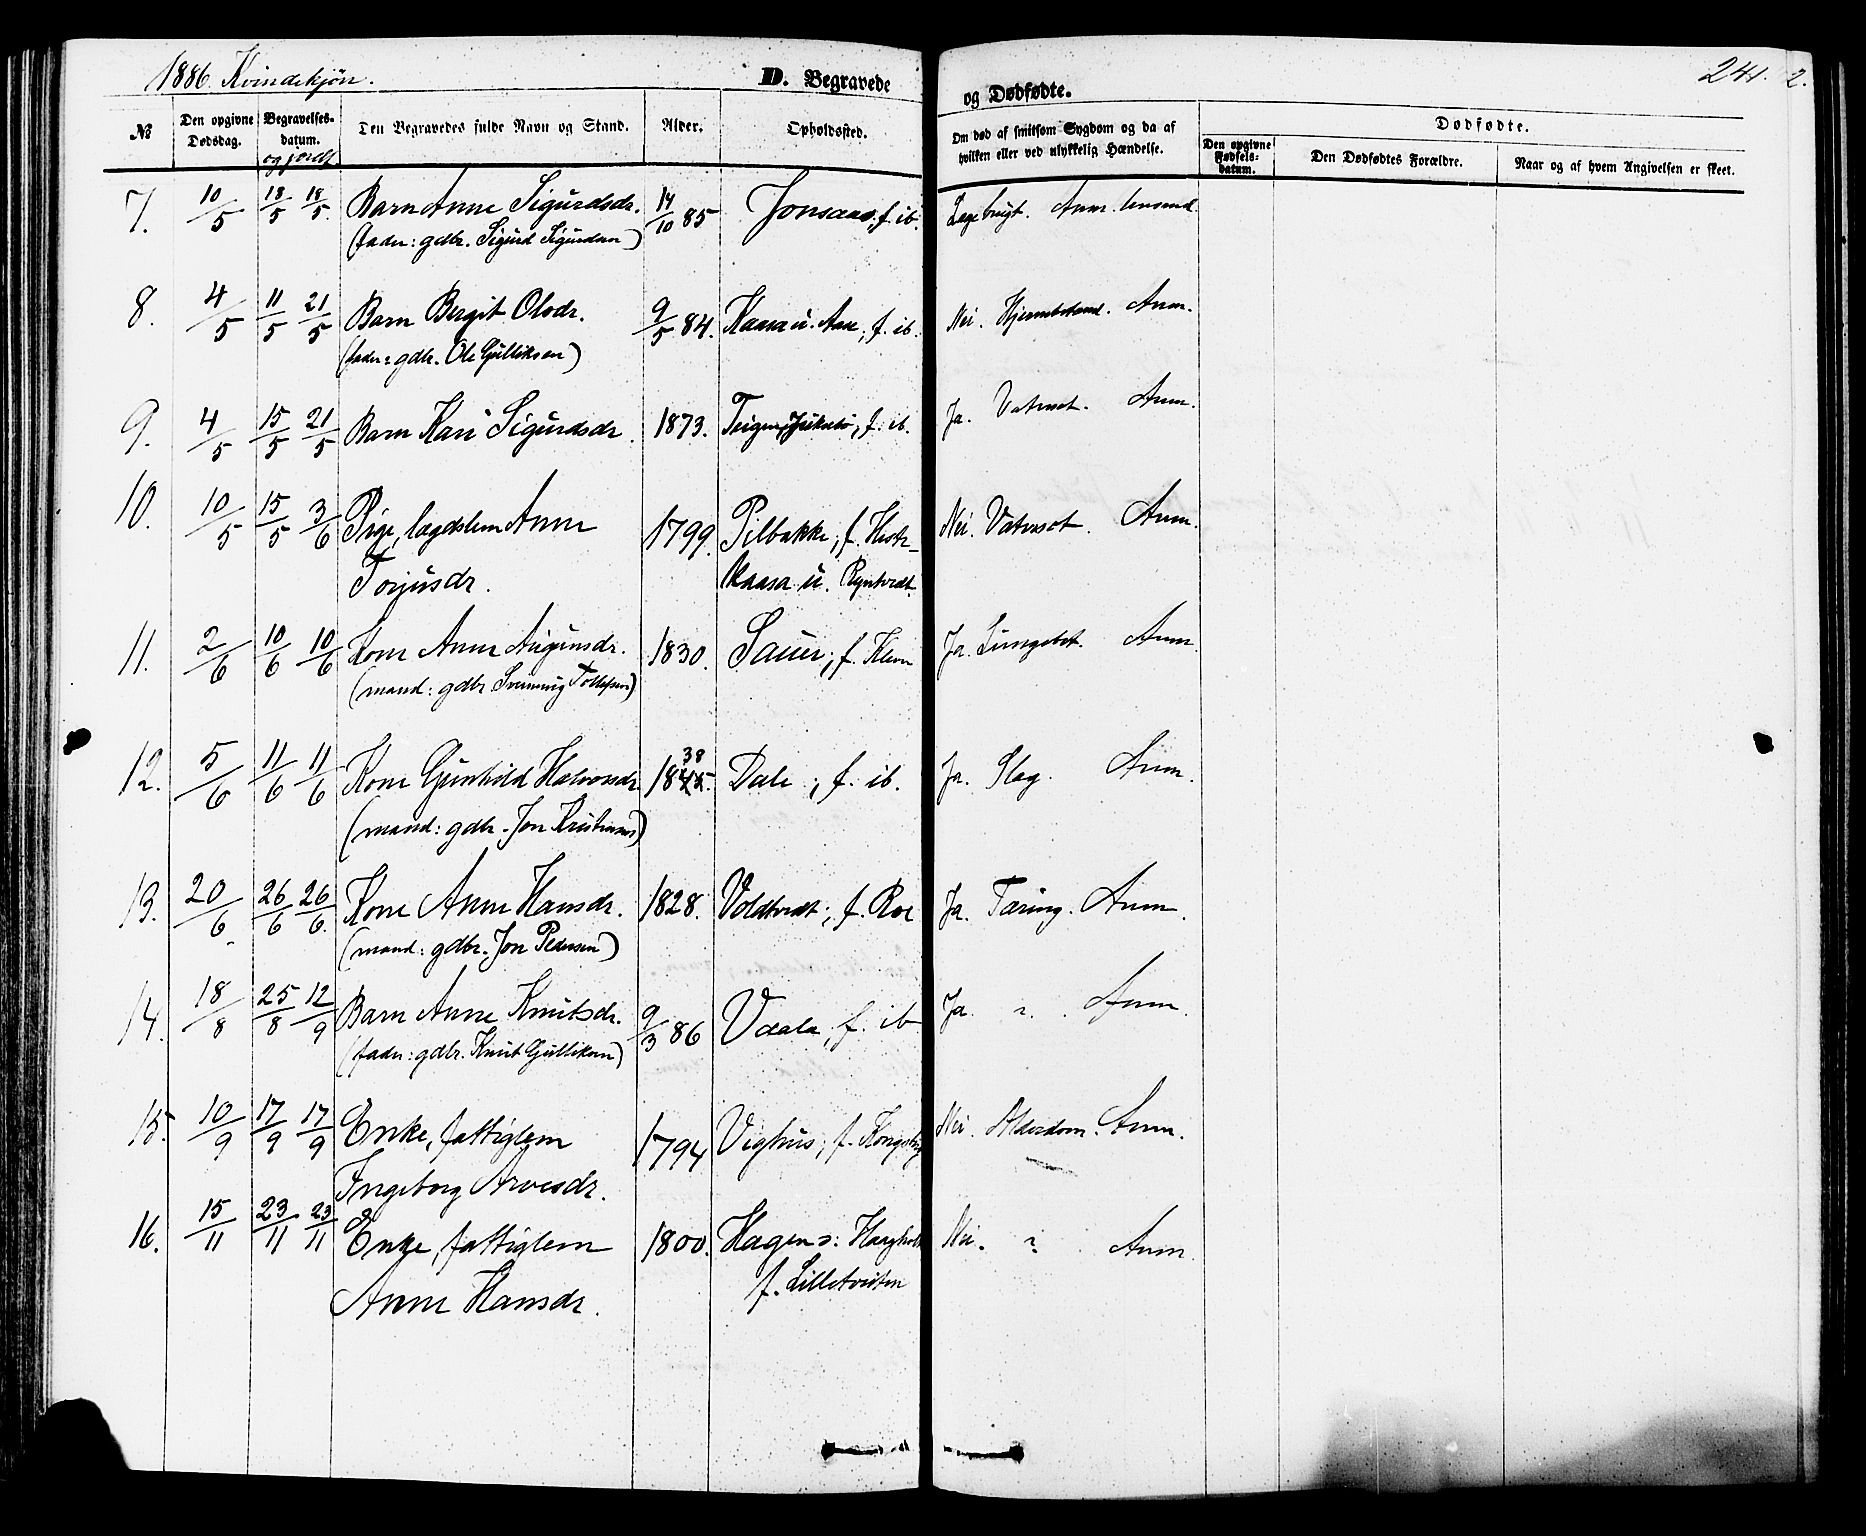 1886. Kvindekjøn. D. Begravede og Dødfødte. 241. 2.
№ Den opgivne Dødsdag. Begravelses-datum. og jordf. Den Begravedes fulde Navn og Stand. Alder. Opholdssted. Om død af smitsom Sygdom og da af hvilken eller ved ulykkelig Hændelse. Dødfødte. Den opgivne Fødsels-datum. Den Dødfødtes Forældre. Naar og af hvem Angivelsen er skeet.
7. 10/5 18/5 18/5. Barn Anne Sigurdsdr. 14/10 85 Jonsaas, f. ib. Anm.
(fader: gdbr. Sigurd Sigurdsen)
8. 4/5 11/5 21/5 Barn Bergit Olsdr. 9/5 84. Kaasa u. Aase, f. ib. Nei. Anm.
(fader: gdbr. Ole Gulliksen)
9. 4/5 15/5 21/5 Barn Kari Sigurdsdr. 1873. f. ib. Ja. Vatersot. Anm.
10. 10/5 15/5 3/6 Pige, lægdslem Anne 1799. Pilbakke, f. Nei. Vatersot. Anm.
Torjusdr. kaasa u.
11. 2/6 10/6 10/6 Kone Anne Augunsdr. 1830. Sauer, f. Klevn Ja. Lungebet. Anm.
(mand: gdbr. Svenning Tollefsen)
12. 5/6 11/6 11/6 Kone Gunhild Halvorsdr. 1845. 38 Dale, f. ib. Ja. Slag. Anm.
(mand: gdbr. Jon Kristensen)
13. 20/6 26/6 26/6. Kone Anne Hansdr. 1828. Voldtvedt, f. Roe Ja. Tæring. Anm.
(mand: gdbr. Jon Pedersen)
14. 18/8 25/8 12/9 Barn Anne Knutsdr. 9/3 86 Vaala, f. ib Ja. Anm.
(fader: gdbr. Knut Gulliksen)
15. 10/9 17/9 17/9 Enke, fattiglem 1794 Vighus, f. Kongsberg Nei. Alderdom. Anm.
Ingeborg Arvesdr.
16. 15/11 23/11 23/11 Enke, fattiglem 1800. Hagen Nei. Anm.
Anne Hansdr. f. Lilletvedten